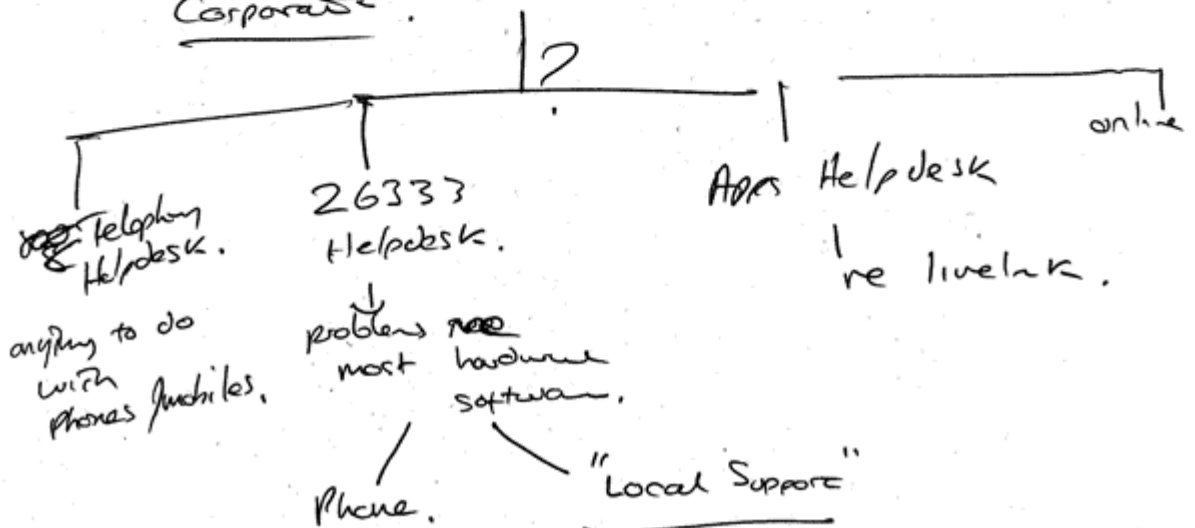 Corporate.
?
online
Telephony
Helpdesk.
anything to do
with
phones/mobiles.
26333
Helpdesk.
problems
most hardware
software.
Phone.
"Local Support"
Apps Helpdesk
re livelink.